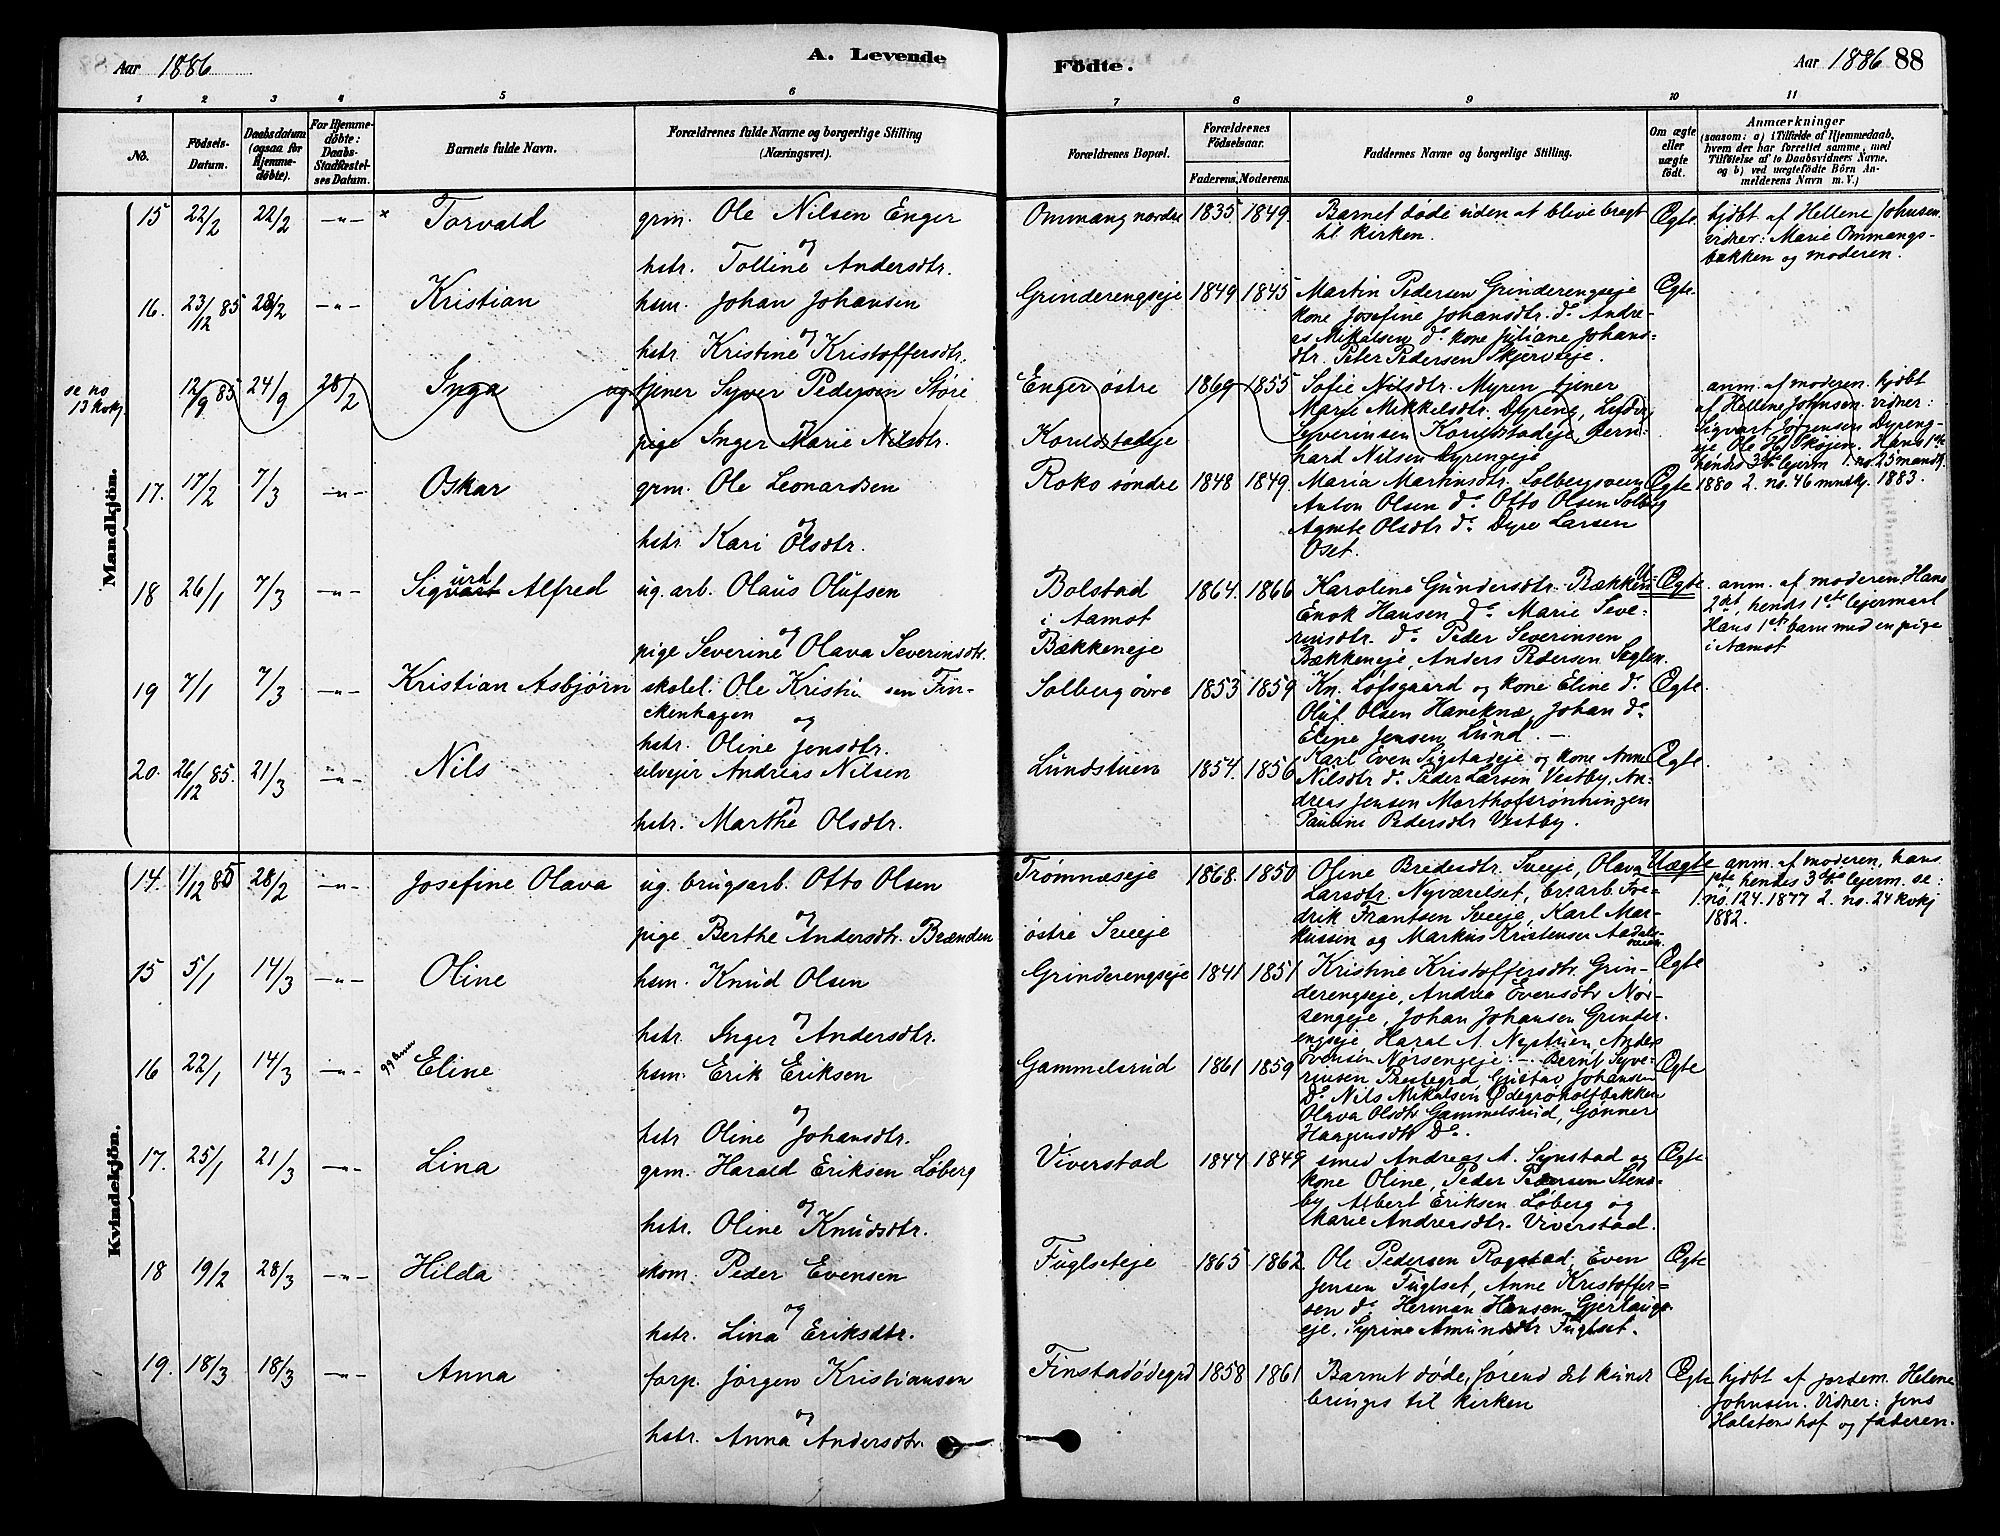 Aar 1886
A. Levende
Födte.
Aar 1886 88
1 2 3 4 5 6 7 8 9 10 11
No.
Födsels-
Datum.
Daabsdatum
(ogsaa for
Hjemme-
døbte).
For Hjemme-
døbte:
Daabs-
Stadfæstel-
ses Datum.
Barnets fulde Navn.
Forældrenes fulde Navne og borgerlige Stilling
(Næringsvei).
Forældrenes Bopæl.
Forældrenes
Fødselsaar.
Faderens. Moderens.
Faddernes Navne og borgerlige Stilling.
Om ægte
eller
uægte
født.
Anmærkninger
(saasom: a) i Tilfælde af Hjemmedaab,
hvem der har forrettet samme, med
Tilföielse af to Daabsvidners Navne.
og b) ved uægtefödte Börn An-
melderens Navn m. V.)
Mandkjön.
15 22/2 22/2 -"- x Torvald grm. Ole Nilsen Enger
og
hstr. Tolline Andersdtr.
Ommang nordre 1835. 1849. Barnet døde uden at blive bragt
til kirken.
Ægte hjdbt af Hellene Johnsen.
vidner: Marie Ommangs-
bækken og moderen.
16. 23/12 85 28/2 -"- Kristian hsm. Johan Johansen
og
hstr. Kristine Kristoffersdtr.
Grinderengseje 1849 1845 Martin Pedersen Grinderengseje
kone Josefine Johansdtr. do Andre-
as Mikalsen do kone Juliane Johans-
dtr. Peter Pedersen Skjerveje.
Ægte.
se no
13 kvkj.
12/9 85 24/9 28/2 Inga ug tjener Syver Pedersen Støre
og
pige Inger Marie Nilsdtr.
Enger østre
Korildstadeje
1869 1855 Sofie Nilsdtr. Myren tjener
Marie Mikkelsdtr. Dyreng, Ludvig
Syverinsen Korildstadeje, Bern-
hard Nilsen Dyrengeje
anm. af moderen. hjdbt
af Hellene Johnsen. vidner:
Sigvart Jørgensen Dyreng-
eje Ole H. Skøjen. Hans 1ste
hendes 3die lejerm 1. no. 25 mandkj.
1880 2. no. 46 mndkj. 1883.
17. 17/2 7/3 -"- Oskar grm. Ole Leonardsen
og
hstr. Kari Olsdtr.
Roko søndre 1848 1849. Maria Martinsdtr. Solbergsveen
Anton Olsen do Otto Olsen Solberg
Agnete Olsdtr do Dyre Larsen
Oset.
Ægte
18 26/1 7/3 -"- Sigvart urd Alfred ug. arb. Olaus Olufsen
og
pige Severine Olava Severinsdtr.
Bolstad
i Aamot
Bækkeneje
1864. 1866 Karoline Gundersdtr. Bækken
Enok Hansen do Marie Seve-
rinsdtr. do Peder Severinsen
Bækkeneje, Anders Pedersen
U-Ægte anm. af moderen. Hans
2det, hendes 1ste lejermaal
Hans 1ste barn med en pige
i Aamot
19 7/1 7/3 -"- Kristian Asbjørn skolel. Ole Kristiansen Fin-
ckenhagen
og
hstr. Oline Jensdtr.
Solberg øvre 1853 1859 Kn. Løfsgaard og kone Eline do
Oluf Olsen Haneknæ, Johan do
Eline Jensen Lund. -
Ægte.
20. 26/12 85. 21/3 -"- Nils selvejer Andreas Nilsen
og
hstr. Marthe Olsdtr.
Lundstuen 1854. 1856 Karl Even Sigstadeje og kone Anne
Nilsdtr do Peder Larsen Vestby, An-
dreas Jensen Marthofsrønningen
Pauline Pedersdtr Vestby.
Ægte.
Kvindekjön.
14. 1/12 85 28/2 -"- Josefine Olava ug. brugsarb. Otto Olsen
og
pige Berthe Andersdtr. Brænden
Trømnæseje
østre Sveeje
1868. 1850 Oline Bredesdtr. Sveeje, Olava
Larsdtr. Nyværelset, br. arb. Fre-
drik Frantsen Sveeje, Karl Mar-
kussen og Markus Kristensen Aadals-
veien.
Uægte anm. af moderen, hans
1ste hendes 3die lejerm. se:
1. no. 124. 1877 2. no. 24 kvkj
1882.
15 5/1 14/3 -"- Oline hsm. Knud Olsen
og
hstr. Inger Andersdtr.
Grinderengseje 1841 1851 Kristine Kristoffersdtr. Grin-
derengseje, Andrea Evensdtr Nor-
sengeje, Johan Johansen Grinder-
engseje Haral A. Nystuen, Anders
Evensen Nørsengeje. -
Ægte
16 22/1 14/3 -"- Eline hsm. Erik Eriksen
og
hstr Oline Johansdtr.
Gammelsrud 1861 1859 Bernt Syve-
rinsen Prestegrd, Gustav Johansen
Do Nils Mikalsen Ødegrdkolfbakken
Olava Olsdtr Gammelsrud, Gønner
Haagensdtr Do.
Ægte
17. 25/1 21/3 -"- Lina grm. Harald Eriksen Løberg
og
hstr. Oline Knudsdtr.
Viverstad 1844 1849 smed Andreas A. Synstad og
kone Oline, Peder Pedersen Stens-
by Albert Eriksen Løberg og
Marie Andreasdtr. Viverstad.
Ægte
18 19/2 28/3 -"- Hilda skom. Peder Evensen
og
hstr. Lina Eriksdtr.
Fuglseteje 1865 1862 Ole Pedersen Rogstad, Even
Jensen Fuglset, Anne Kristoffer-
sen do Herman Hansen Gjerlaugs-
eje, Syrine Amundsdtr Fuglset.
Ægte
19. 18/3 18/3 -"- Anna forp. Jørgen Kristiansen
og
hstr. Anna Andersdtr.
Finstadødegrd 1858 1861 Barnet døde, førend det kunde
bringes til kirken
Ægte hjdbt af jordem. Helene
Johnsen. Vidner: Jens
Halstenshof og faderen.